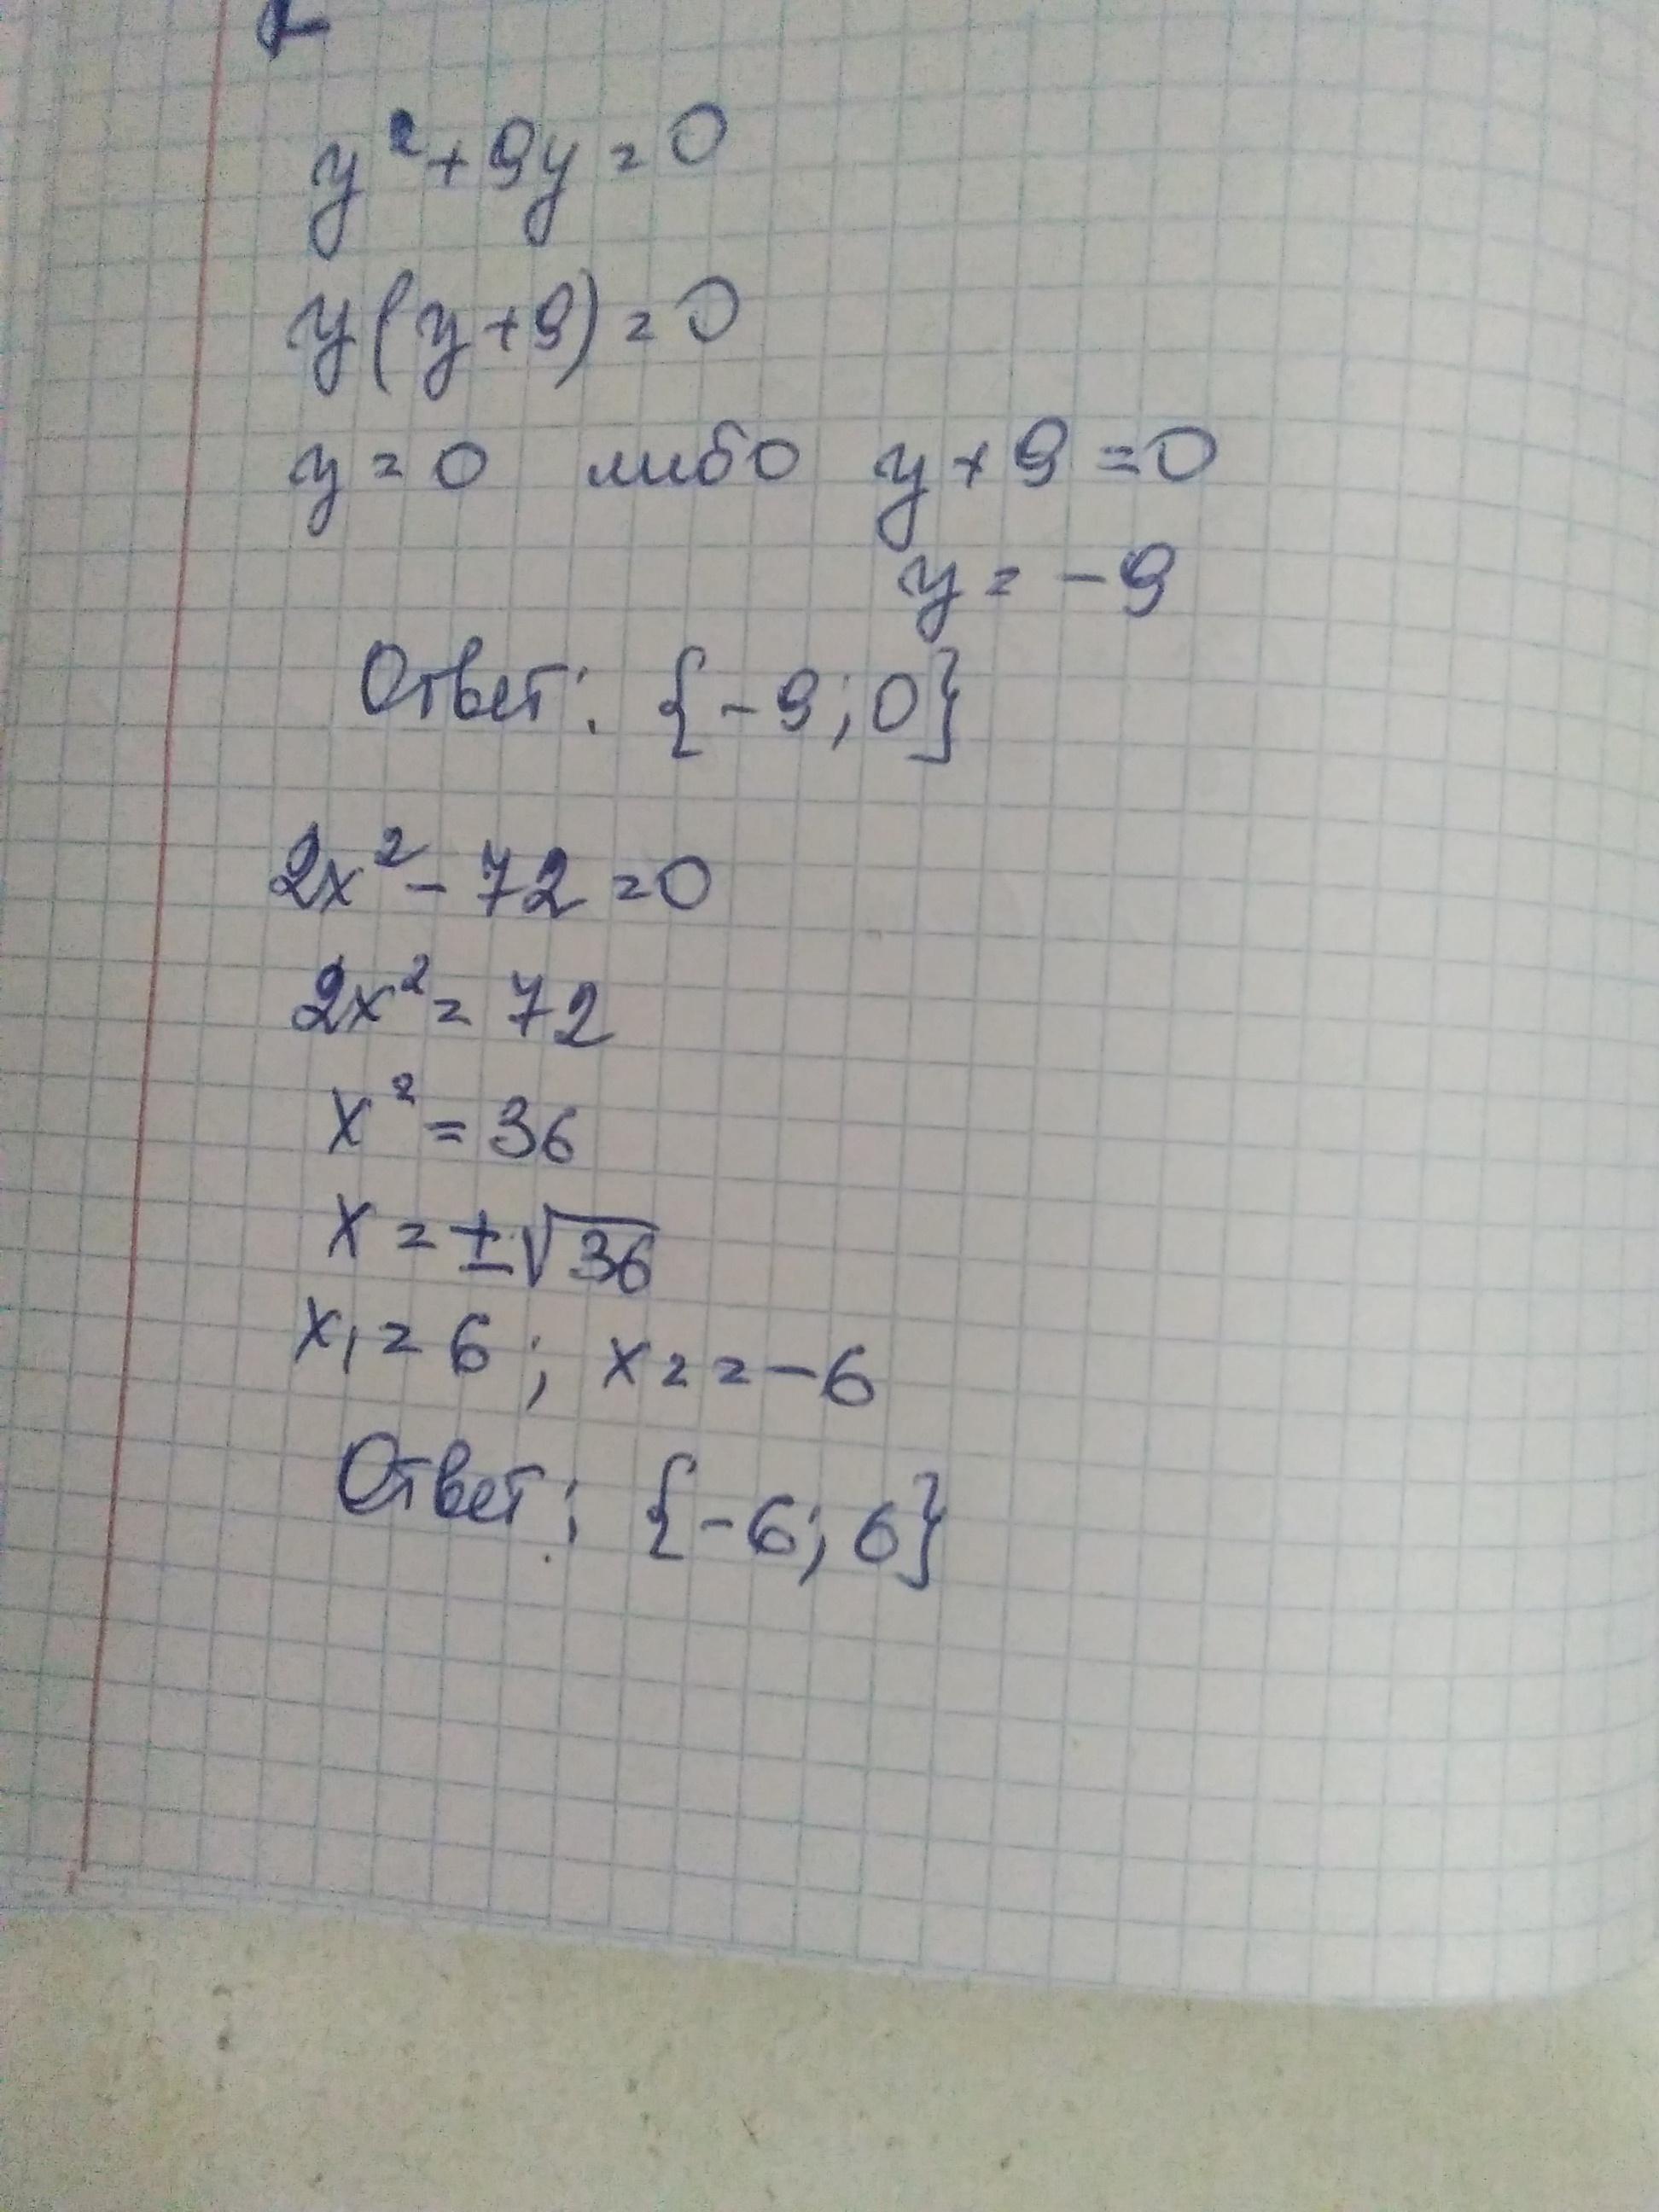 y²+9y=0
y(y+9)=0
y=0 либо y+9=0
y=-9
Ответ: {-9;0}
2x²-72=0
2x²=72
x²=36
x=±√36
x₁=6; x₂=-6
Ответ: {-6;6}